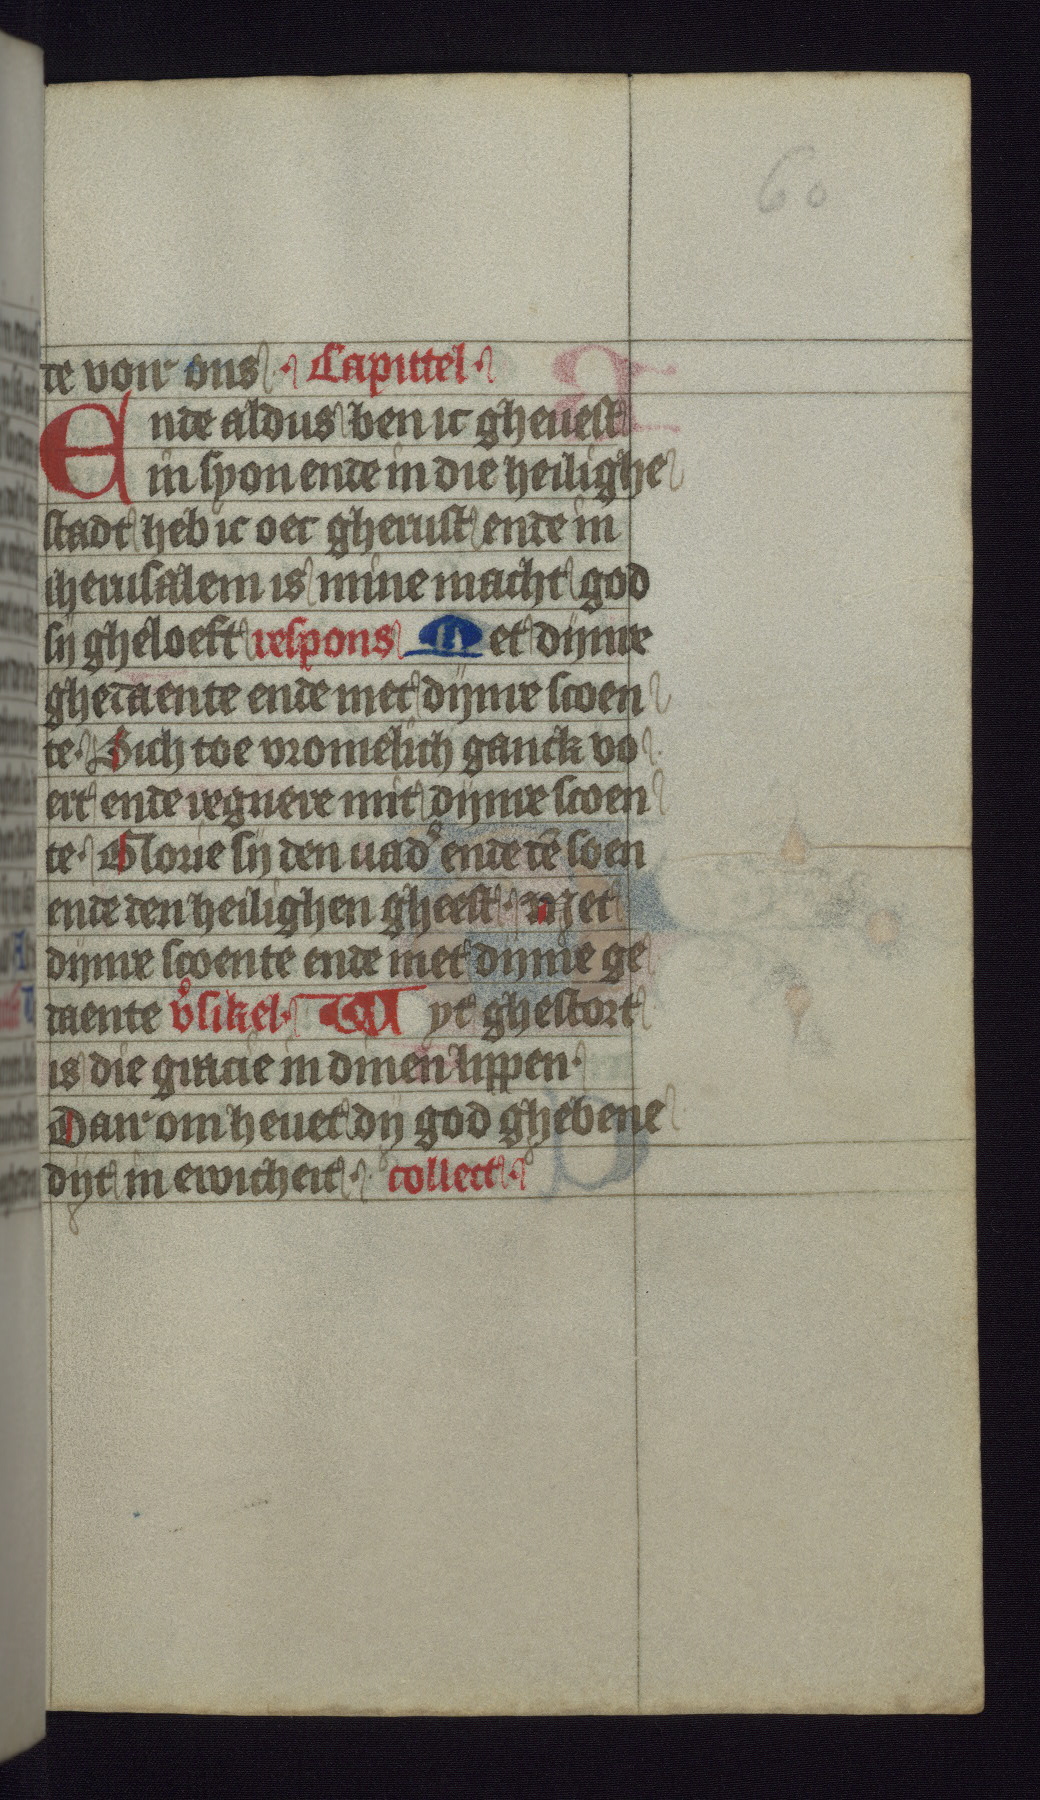 60
te voir ons · Capittel ·
Ende aldus ben ic gheuest
in syon ende in die heilighe
stadt heb ic oec gherust ende in
iherusalem is mine macht god
sij gheloeft respons Met dijnre
ghedaente ende met dijnre scoen
te · Sich toe vromelich ganck vo
ert ende regnere mit dijnre scoen
te · Glorie sij den uad&#x27; ende dē soen
ende den heilighen gheest · Met
dijnre scoente ende met dijnre ge
daente v&#x27;sikel · Wyt ghestort
is die gracie in dinen lippen ·
Dair om heuet dij god ghebene
dijt in ewicheit · collect ·